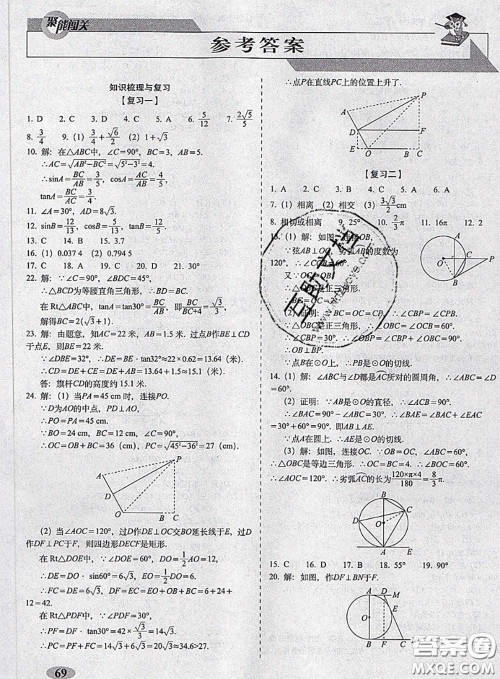 聚能闯关
参考答案
知识梳理与复习
【复习一】
1. D 2. C 3. D 4. A 5. C 6. 5/12 7. 2√5/5
8. 3/4 9. (1) 3/4+√6/2 (2) 1+√3
10. 解：在△ABC中，∠C=90°，BC=3，AB=5.
∴AC=√(AB²-BC²)=√(5²-3²)=4.
∴sinA=BC/AB=3/5，cosA=AC/AB=4/5，
tanA=BC/AC=3/4.
11. ∠A=30°，AD=8√3.
12. sinB=12/13，cosB=5/13，tanB=12/5.
13. C 14. B 15. 7.7
16. (1) 0.037 4 (2) 0.794 5
17. C 18. A 19. D 20. D 21. 90°
22. 解：∵∠C=90°，∠BDC=45°，
∴△BCD为等腰直角三角形. ∴BC=DC.
在Rt△ABC中，tanA=tan30°=BC/AB，即BC/(BC+4)=√3/3，
解得BC=2(√3+1).
23. 解：由题意，知AC=22米，AB=1.5米. 过点B作BE⊥CD
于点E，则BE=22米.
∵∠DBE=32°，∴DE=BE·tan32°≈22×0.62=13.64（米）.
∴CD=DE+CE=DE+AB=13.64+1.5≈15.1（米）.
答：旗杆CD的高度约15.1米.
24. 解：(1) 当PA=45 cm时，连接PO.
∵D为AO的中点，PD⊥AO，
∴PO=PA=45 cm.
∵BO=24 cm，BC=12 cm，∠C=90°，
∴OC=OB+BC=36（cm），PC=√(45²-36²)=27（cm）.
P
A
D
O
B
C
(2) 当∠AOC=120°，过D作DE⊥OC交BO延长线于E，过
D作DF⊥PC于F，则四边形DECF是矩形.
在Rt△DOE中，∵∠DOE=60°，DO=1/2AO=12，
∴DE=DO·sin60°=6√3，EO=1/2DO=6.
∴FC=DE=6√3，DF=EC=EO+OB+BC=6+24+
12=42.
在Rt△PDF中，∵∠PDF=30°，
∴PF=DF·tan30°=42×√3/3=14√3.
∴PC=PF+FC=14√3+6√3=20√3≈34.6>27.
∴点P在直线PC上的位置上升了.
P
A
D
F
E
O
B
C
【复习二】
1. A 2. C 3. D 4. C 5. C 6. A
7. (1) 相离 (2) 相交 (3) 3√3/2 cm
8. 相切或相离 9. 25° 10. 2/3π 11. 16π 12. 2
13. (1) 解：如图，连接OB.
∵弦AB⊥OC，劣弧AB的度数为
120°，∴∠COB=60°.
又∵OC=OB，
(2) 证明：∵BC=BO，
∴∠CBP=∠CPB.
∴OB⊥BP.
∵点B在⊙O上，∴BP是⊙O的切线.
14. (1) 解：∵∠ABC与∠D都是AC所对的圆周角，∴∠ABC=∠D=
60°.
(2) 证明：∵AB是⊙O的直径，∴∠ACB=90°.
∴∠BAC=30°. ∴∠BAE=∠BAC+∠EAC=
30°+60°=90°，即BA⊥AE.
∵点A在圆上，∴AE是⊙O的切线.
(3) 解：如图，连接OC. ∵OB=OC，∠ABC=60°，
∴△OBC是等边三角形. ∴OB=BC=4，∠BOC=60°.
∴∠AOC=120°. ∴劣弧AC的长为(120×π×4)/180=8/3π.
15. C 16. D 17. B 18. 55° 19. 90°
20. 解：如图，作DF⊥BN于F.
69
答案圈
MXQE.COM